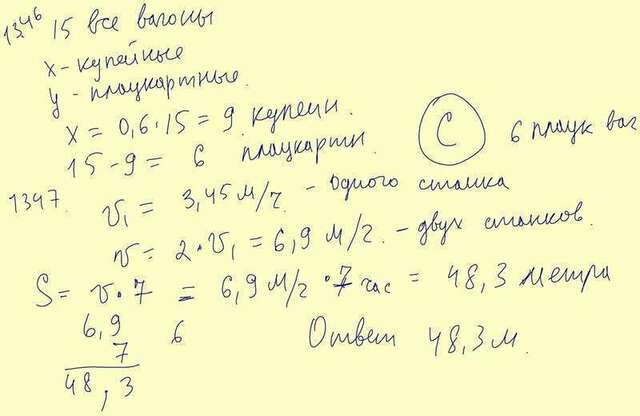 1346 15 все вагоны
x - купейные
y - плацкартные.
x = 0,6·15 = 9 купейн.
15-9 = 6 плацкартн.
С 6 плацк ваг
1347. v₁ = 3,45 м/г. - одного станка
v = 2·v₁ = 6,9 м/г. - двух станков.
S = v·7 = 6,9 м/г ·7 час = 48,3 метра
6,9 6
7
48,3
Ответ 48,3 м.